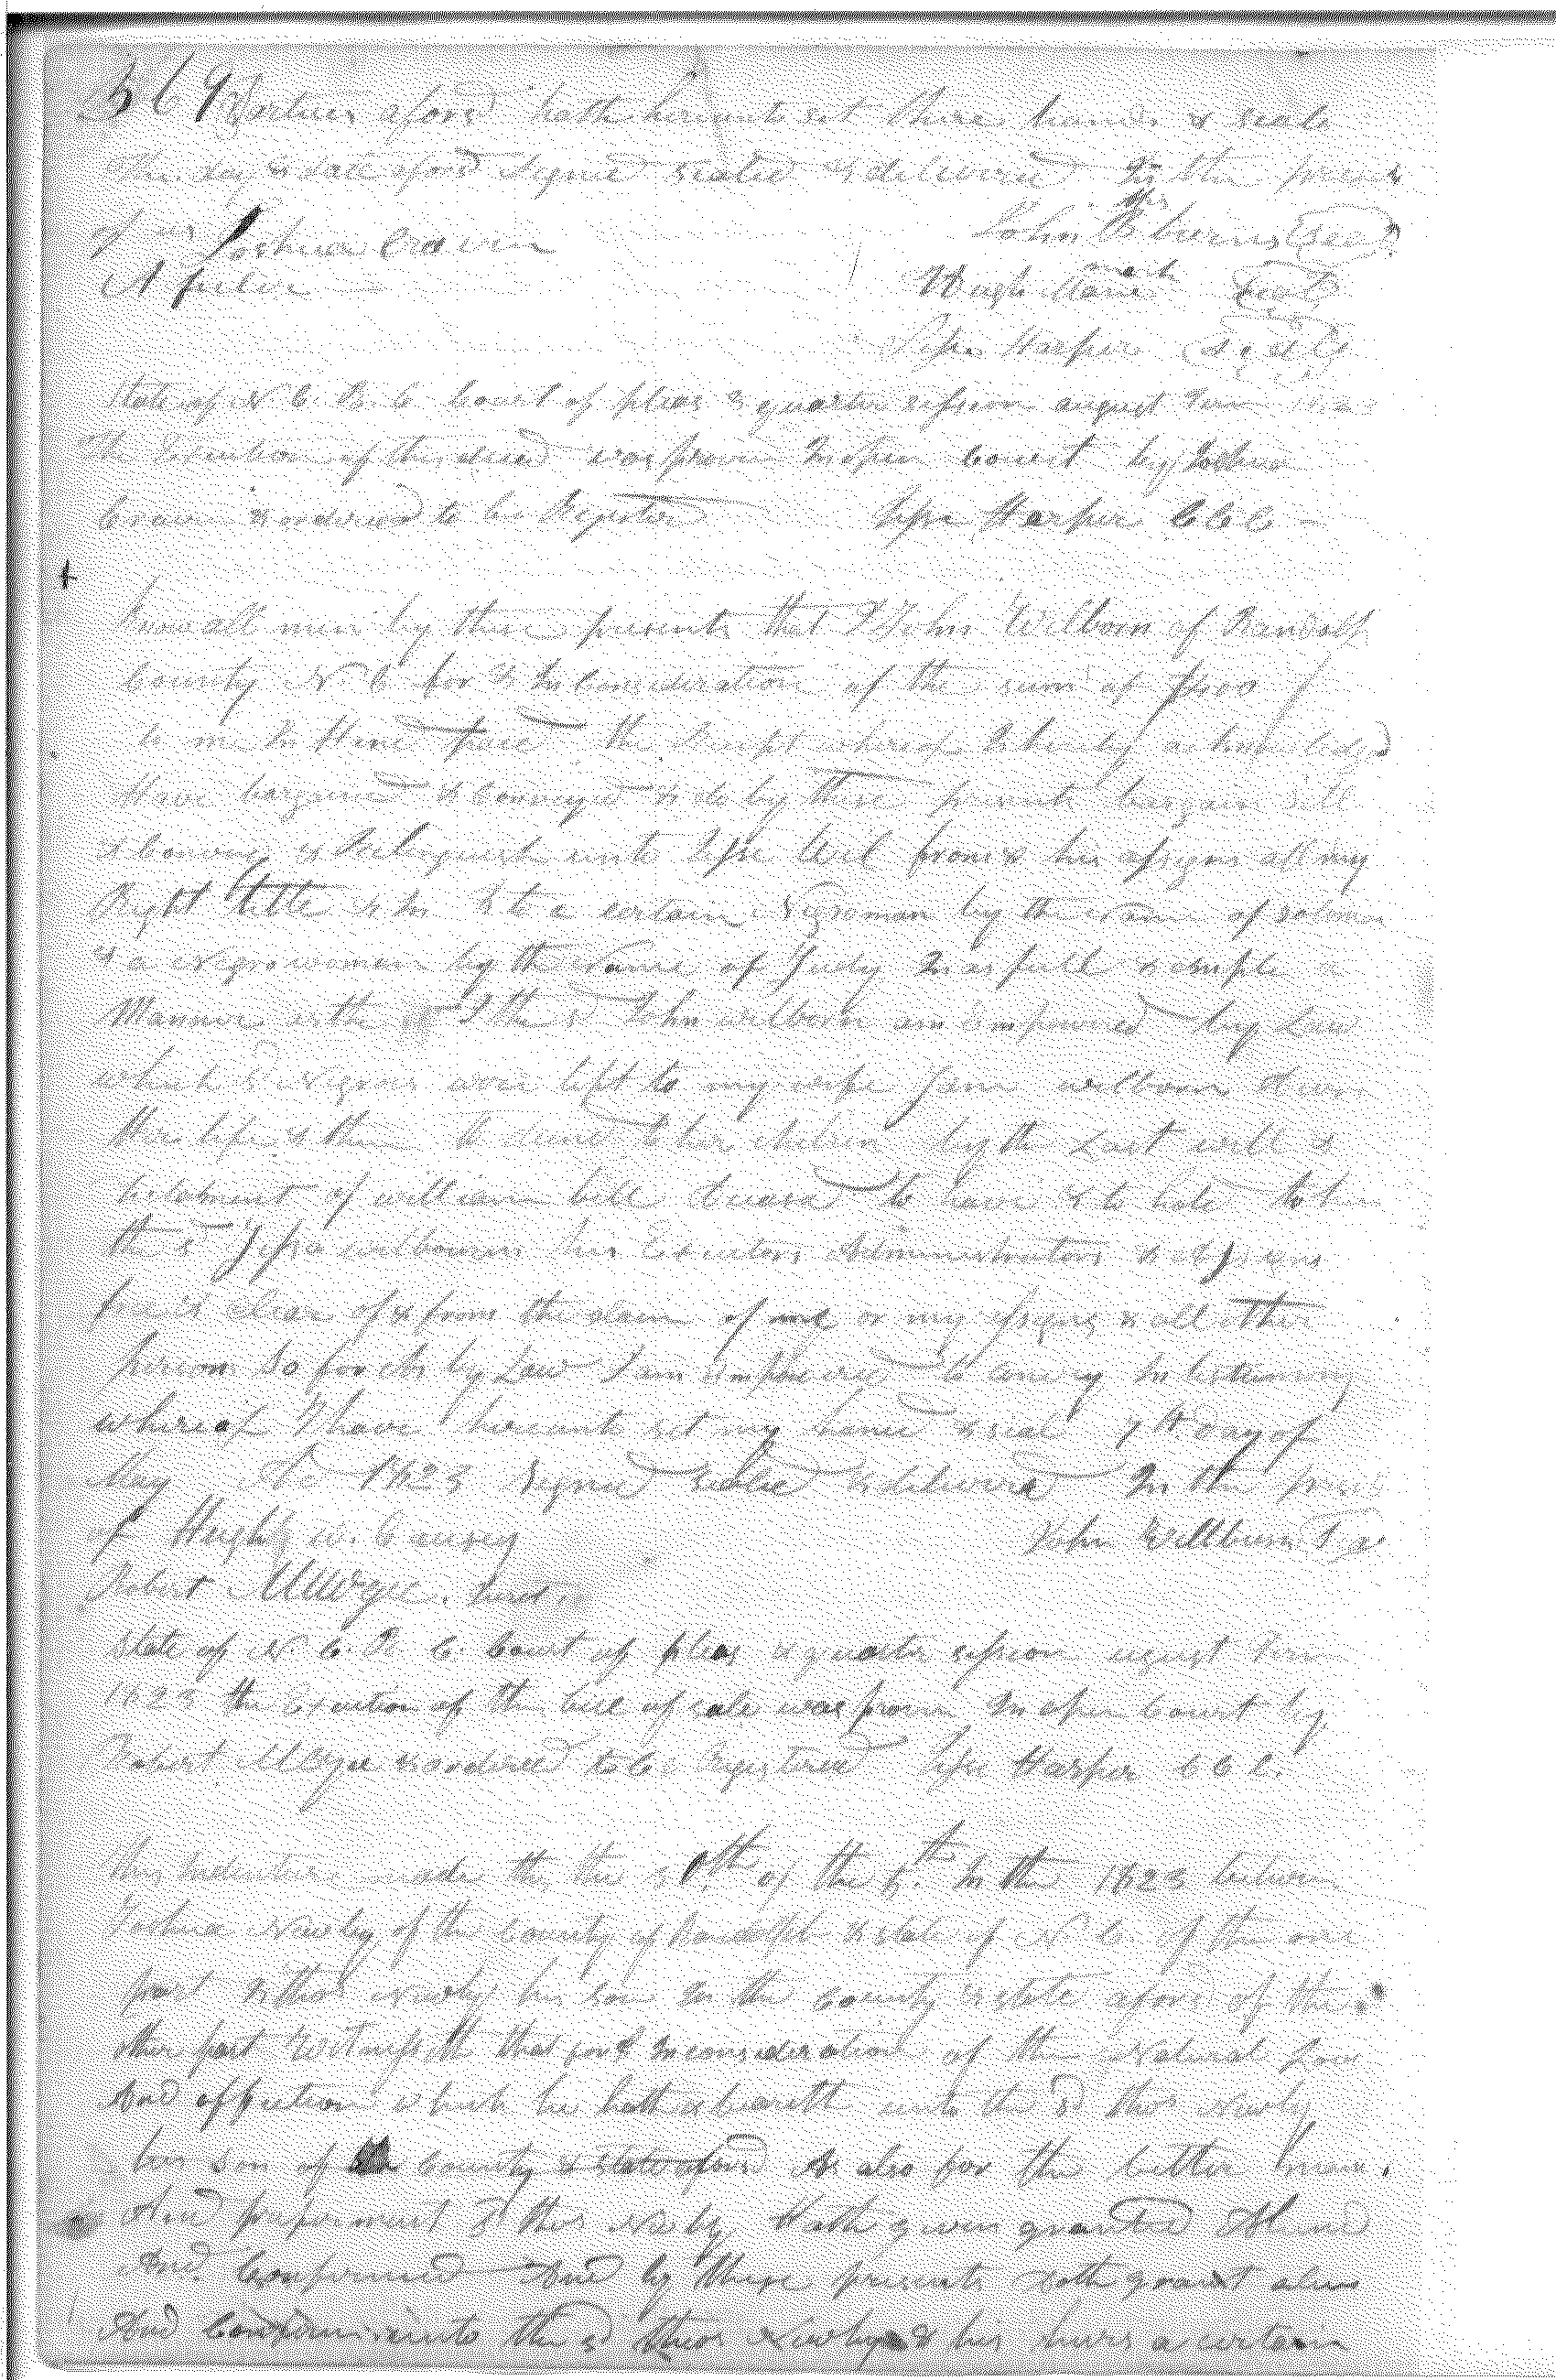 369 parties aforsd hath hereunto set there hands & seals
the day & date aforsd Signed sealed & delivered In the presen
of us Joshua Craven John his B burns Seal
A fuller Hugh mark Seal
Jesse Harper Seal
State of N C. R. C Court of pleas & quarter session august Term 1823
The Execution of this deed was proven In open Court by Joshua
Craven & ordered to be Register Jesse Harper C C C
+
Know all men by these presents that I John Welborn of Randolph
County N. C for & In Consideration of the sum of
to me In Hand paid the Receipt whereof Is hereby acknowledged
Have bargained & Conveyed & do by these presents bargain sell
& Convey & Relinquish unto Jesse Wel from & his assigns all my
Right title & In & to a certain Negro man by the Name of Solomon
& a Negro woman by the Name of Judy In as full & ample a
Manner as the I the sd John welborn am Empowered by Law
which sd Negroes were left to my wife Jane welborn
life & then to decend to her children by the Last will &
testament of william bell deceasd to have & to hold to him
the sd Jesse welbourn his Executors Administrators & assigns
free & clear of & from the claim of me or my assigns & all other
persons So for As by Law I am Empowered to convey In testimony
whereof I have hereunto set my hand & seal 7th Day of
May 1823 Signed sealed & delivered In the presen
of Hugh W. Causey John Wellburn Seal
Robert McGee. Jurat
State of N. C. R. C. Court of pleas & quarter session august Term
1823 the Execution of this bill of sale was proven In open Court by
Robert McGee & ordered to be Registered Jesse Harper C C C.
This Indenture made this the 30th of the 6th In the 1823 between
Joshua Newby of the County of Randolph & state of N C. of the one
part & thos Newby his son In the County & state aforsd of the
other part Witnesseth that for & In consideration of the Natural Love
And affection which he hath & beareth unto the sd thos Newby
his son of County & state aforsd As also for the better
And preferment sd thos Newby Hath given granted Aliend
And Confirmed And by these presents doth grant alien
And Confirm unto the sd thos Newby & his heirs a certain